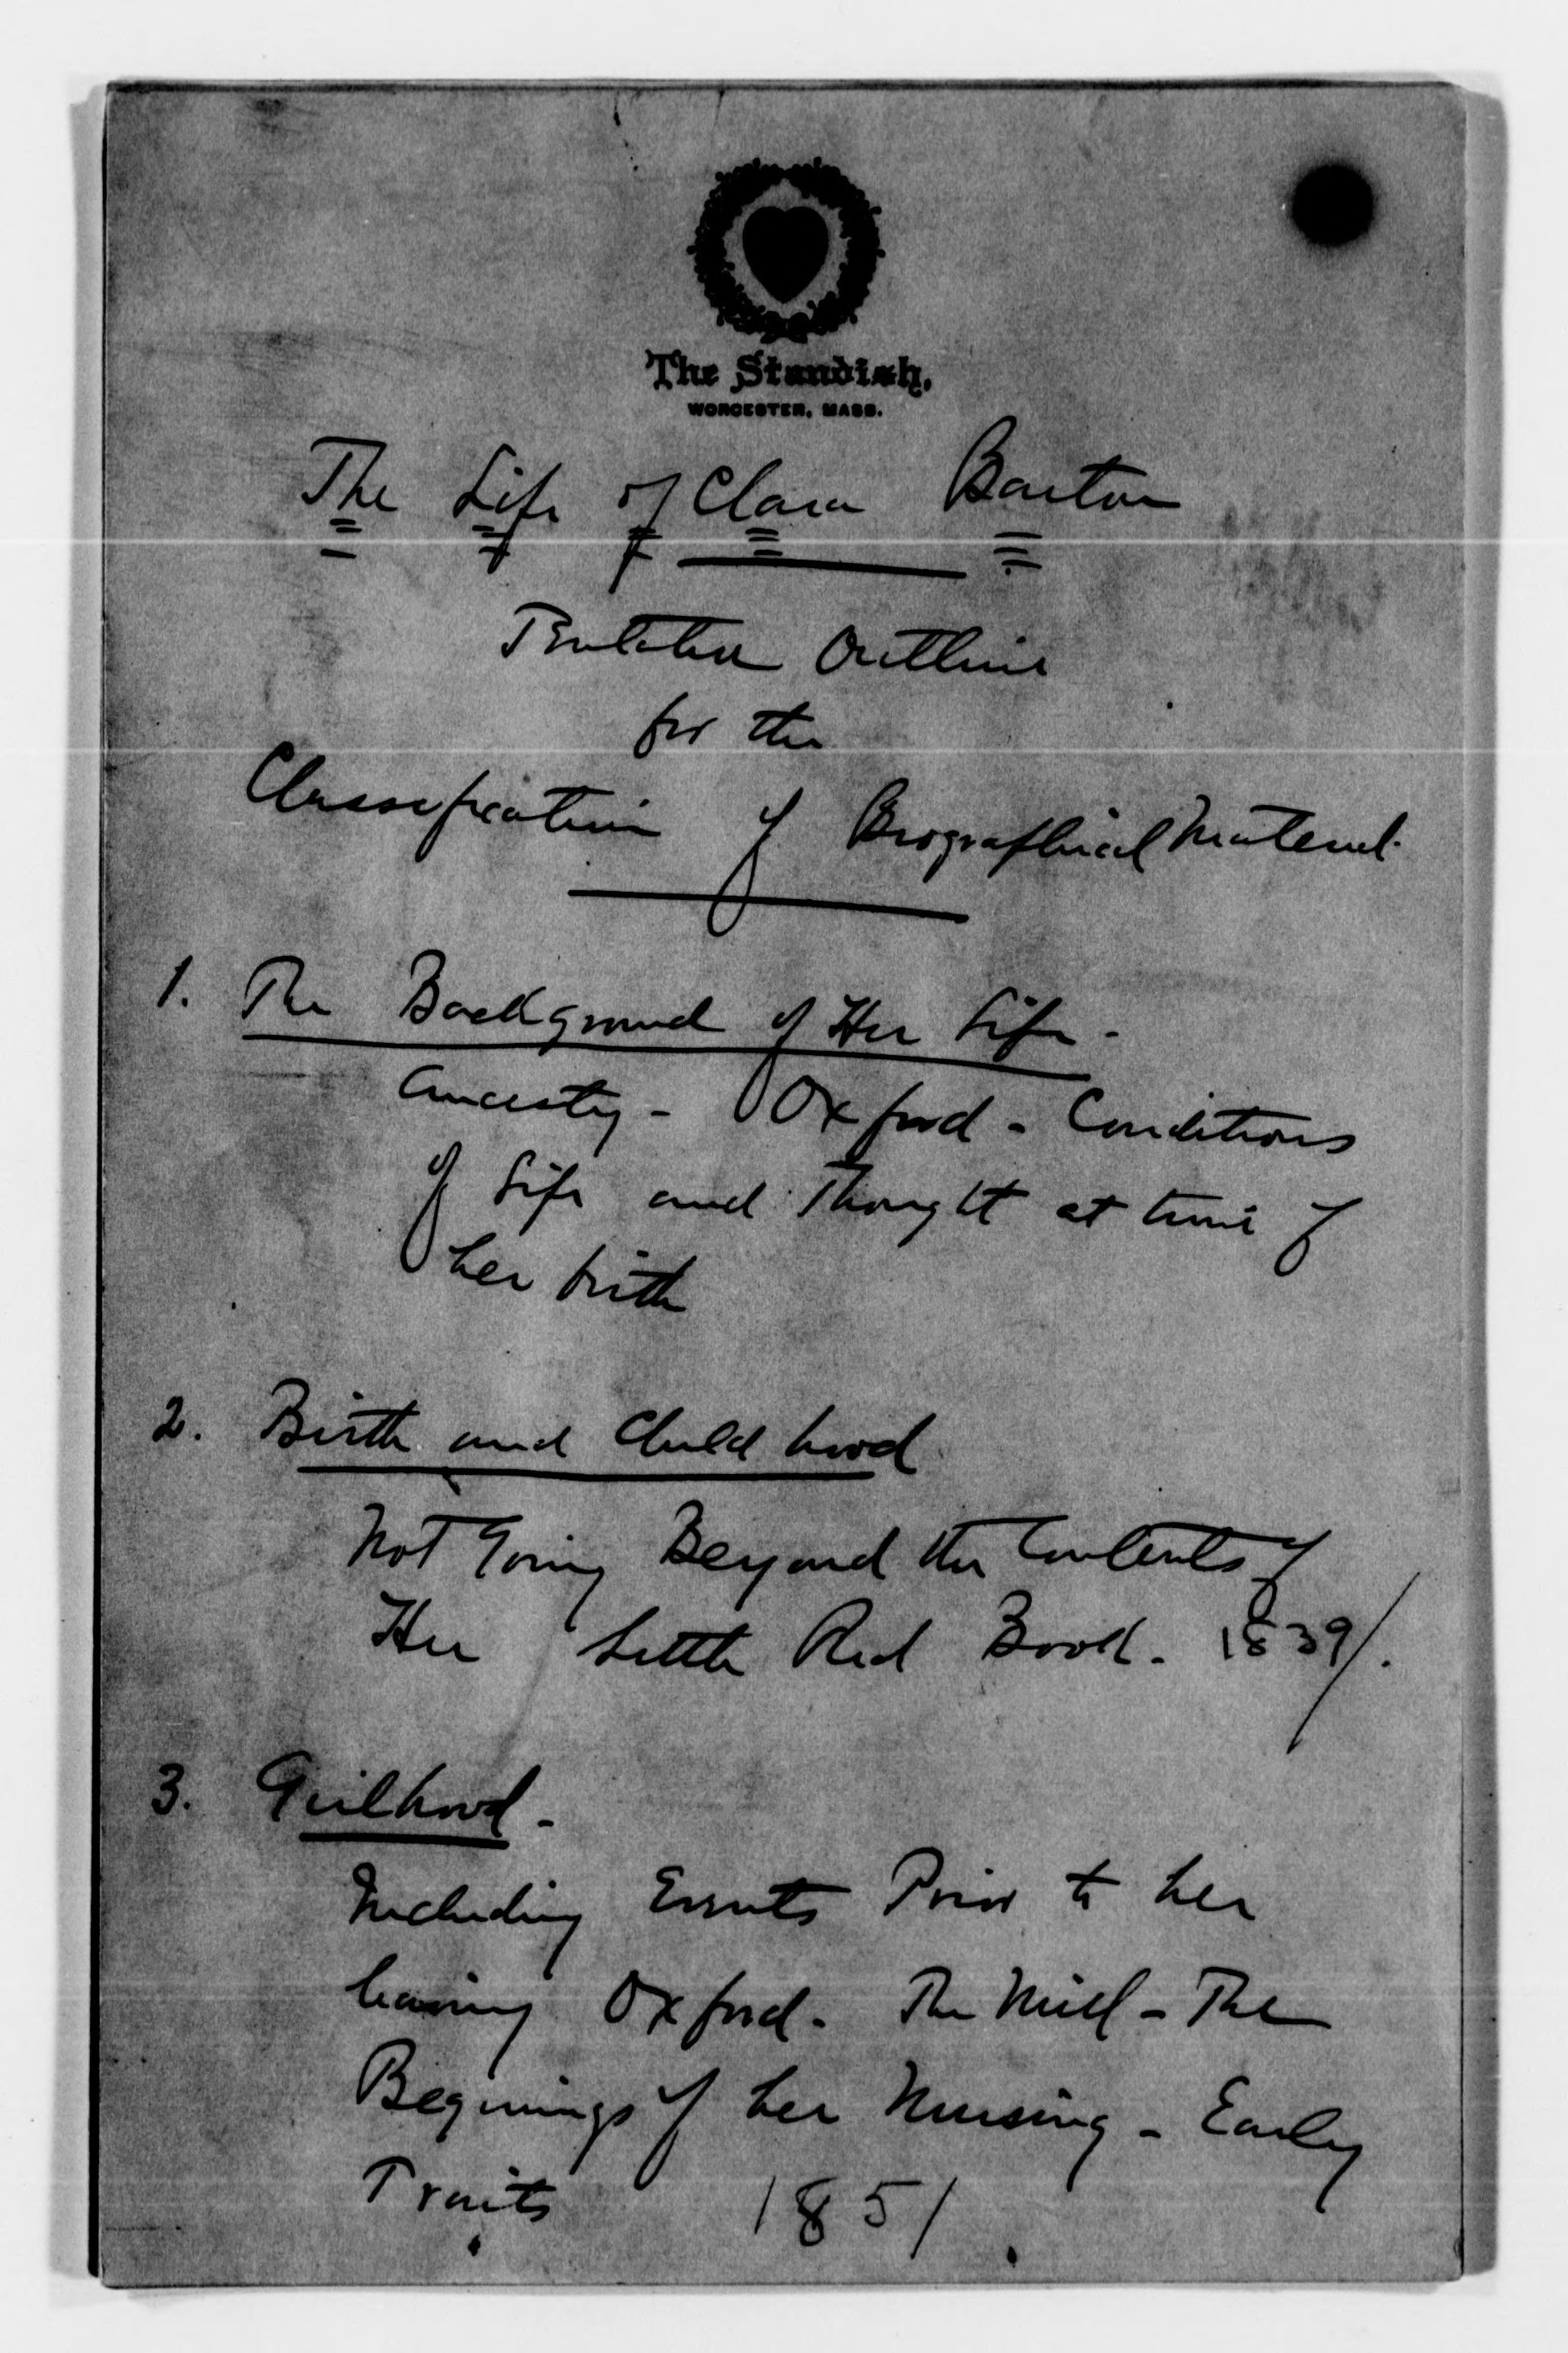 The Standish,
WORCESTER, MASS.
The Life of Clara Barton
Tentative Outline
for the
Classification of Biographical Material.
1. The Background of Her Life -
Ancestry - Oxford - Conditions
of Life and Thought at time of
her birth
2. Birth and Childhood
Not Going Beyond the Contents of
Her Little Red Book. 1839/.
3. Girlhood -
Including Events Prior to her
leaving Oxford. The Mill - The
Beginnings of her Nursing - Early
Traits 1851